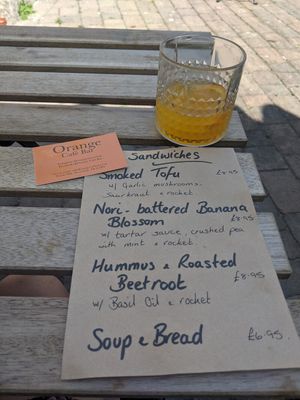 Orange
Café Bar
Sandwiches
Smoked Tofu £8.95
w/ Garlic mushrooms,
Saurkraut & rocket
Nori-battered Banana
Blossom £8.95
w/ tartar sauce, crushed pea
with mint & rocket
Hummus & Roasted
Beetroot £8.95
w/ Basil Oil & rocket
Soup & Bread £6.95